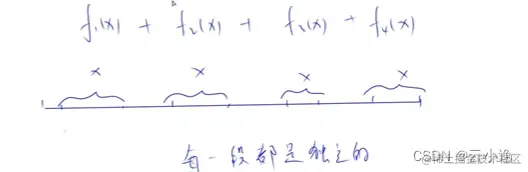 f₁(x) + f₂(x) + f₃(x) + f₄(x)
x x x x
每一段都是独立的
CSDN @云小逸
@稀土掘金技术社区